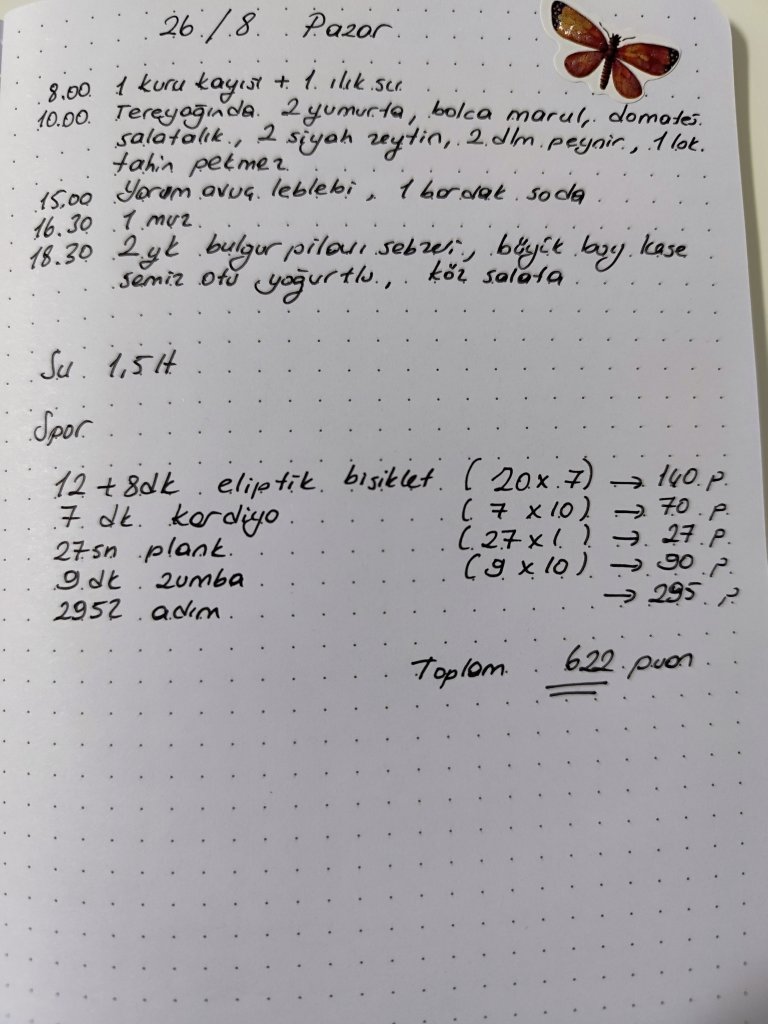 26/8 Pazar
8.00 1 kuru kayısı + 1 ılık su
10.00 Tereyağında 2 yumurta, bolca marul, domates
salatalık, 2 siyah zeytin, 2 dlm peynir, 1 lok.
tahin pekmez
15.00 Yarım avuç leblebi, 1 bardak soda
16.30 1 muz
18.30 2 yk bulgur pilavı sebzeli, büyük boy kase
semiz otu yoğurtlu, köz salata
Su 1,5 lt
Spor
12 + 8dk eliptik bisiklet (20 x 7) → 140 p.
7 dk kardiyo (7 x 10) → 70 p.
27sn plank (27 x 1) → 27 p.
9 dk zumba (9 x 10) → 90 p.
2952 adım → 295 p
Toplam 622 puan